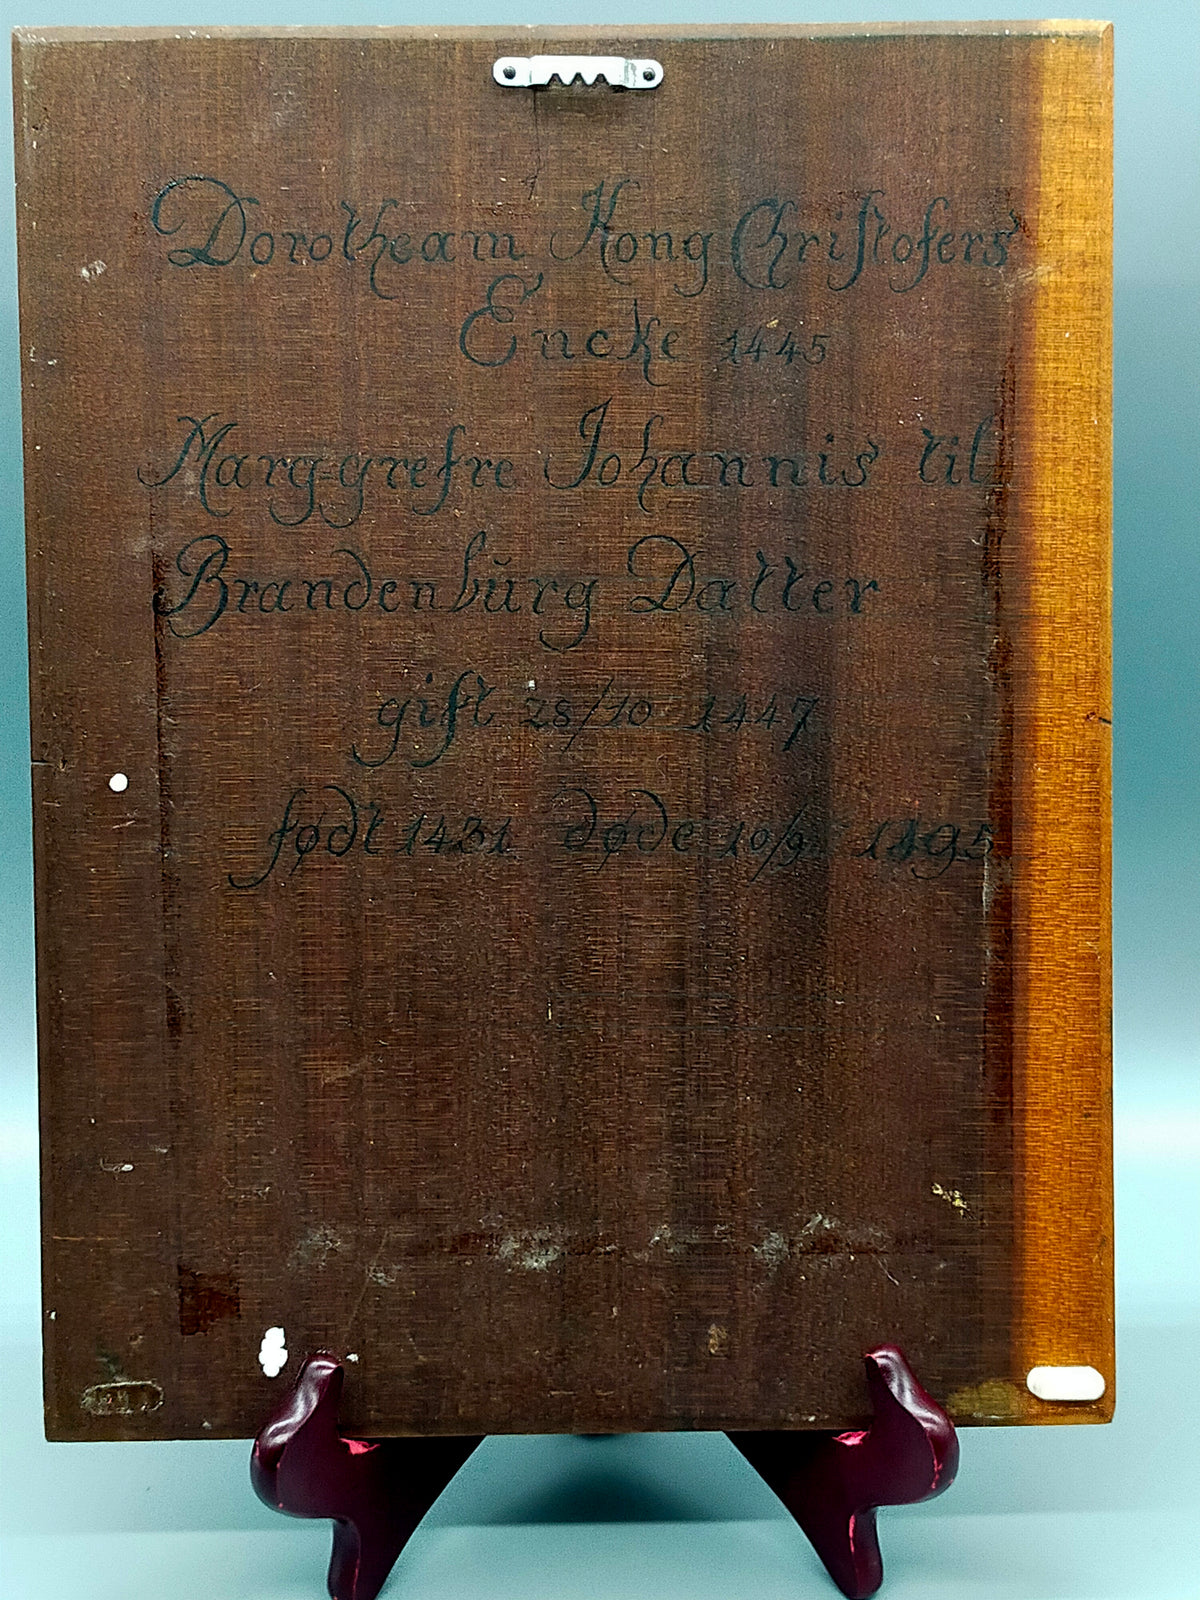 Dorotheam Kong Christofers
Encke 1445
Marg-grefre Johannis til
Brandenbŭrg Datter
gift 28/10 1447
født 1431 døde 10/9 1495